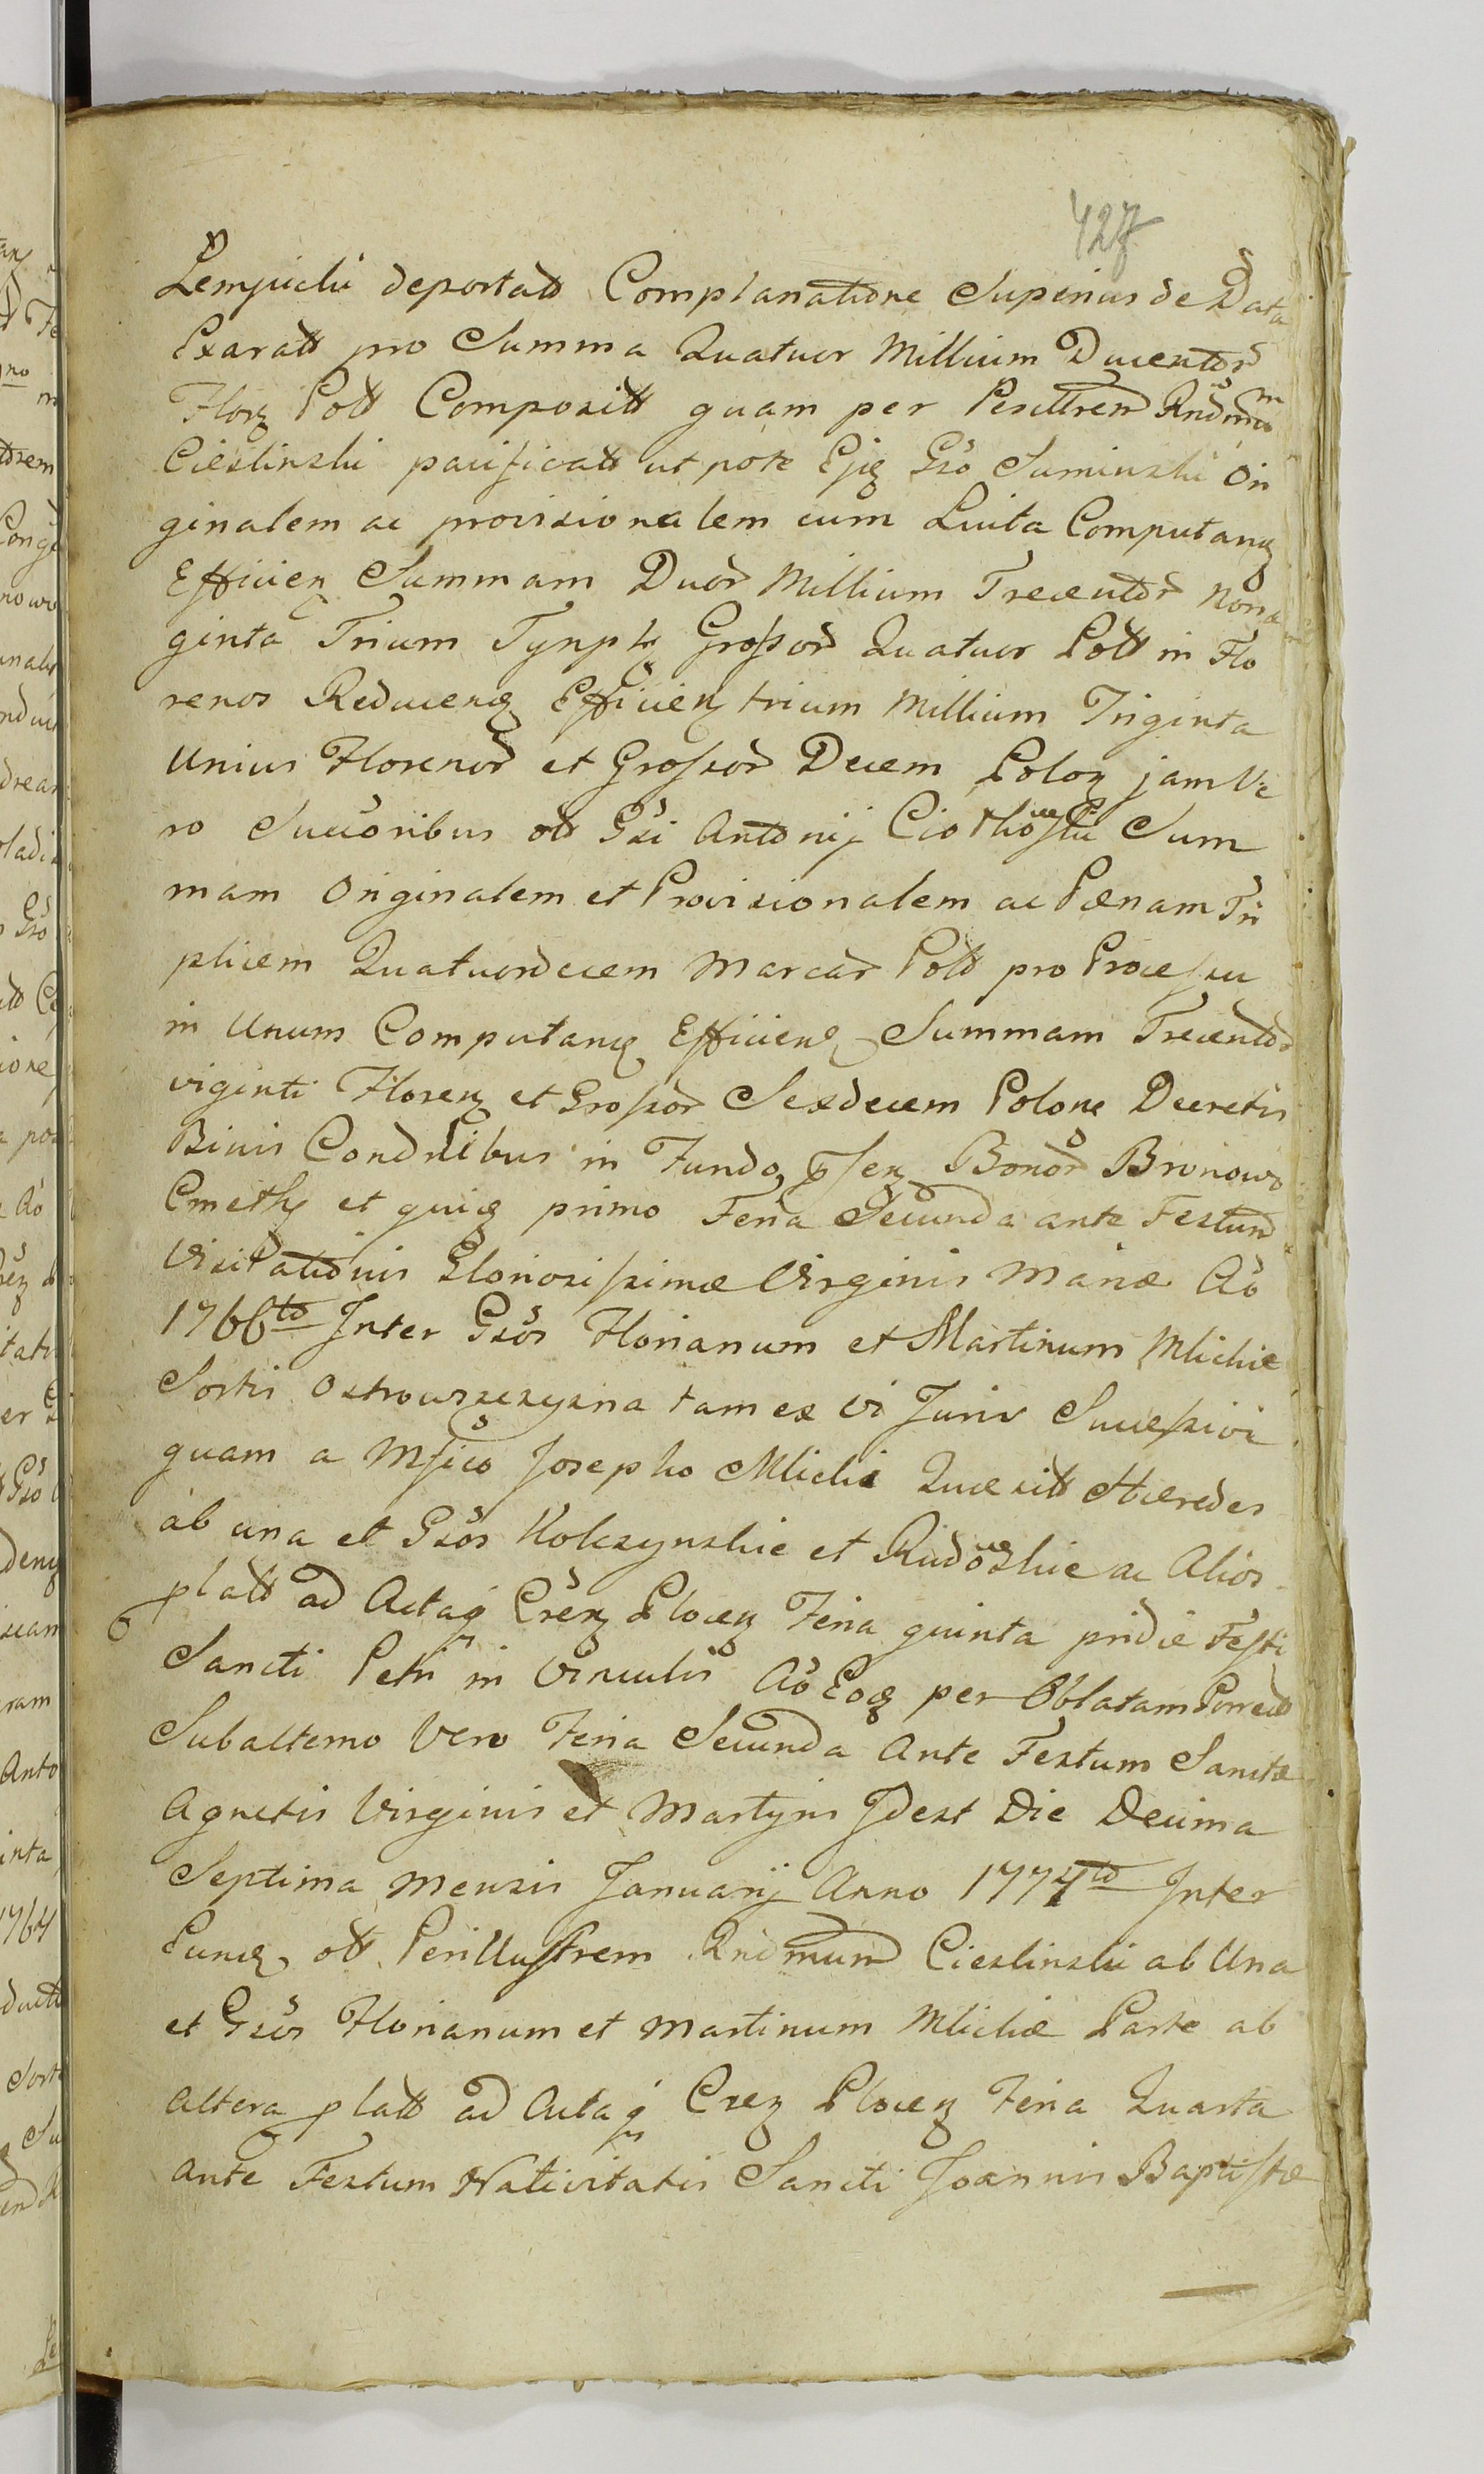 427
Lempicki deportatt Complanatione Superius de Data
Exaratt pro Summa Quatuor Millium Ducentor
Flor Poll Compositt quam per Perillrem Rndmum
Cieslinski pacificatt ut pote Ejq Gso Suminski Ori
ginalem ac provisionalem cum Luita Computanq
Efficien Summam Duor Millium Trecentor Nona
ginta Trium Tynph Grossor Quatuor Poll in Flo
renos Reducenq Efficien trium Millium Triginta
Unius Florenor et Grossor Decem Polon jam Ve
ro Succoribus ob Gsi Antonij Ciotkowski Sum
mam Originalem et Provisionalem ac Pænam Tri
plicem Quatuordecem Marcar Poll pro Processu
in Unum Computanq Efficienq Summam Trecentor
viginti Floren et Grossor Sexdecem Polone Decretis
Binis Condnlibus in Fundo psen Bonor Bronowo
Cmeth et quiq primo Feria Secunda ante Festum
Visitationis Gloriosissimæ Virginis Mariæ Ao
1766to Inter Gsos Florianum et Martinum Mlickie
Sortis Ostrowszczyzna tam ex vi Juris Successivi
quam a Mfico Josepho Mlicki Quæsitt Hæredes
ab una et Gsos Kolczynskie et Rudowskie ac Alios
platt ad Actaq Cren Plocen Feria quinta pridie Festi
Sancti Petri in Vinculis Ao Eoq per Oblatam Porrect
Subalterno Vero Feria Secunda Ante Festum Sanctæ
Agnetis Virginis et Martyris Idest Die Decima
Septima Mensis Januarij Anno 1774to Inter
Eunq ott Perillustrem Rndmum Cieslinski ab Una
et Gsos Florianum et Martinum Mlickie Parte ab
altera platt ad Actaq Cren Plocen Feria Quarta
ante Festum Nativitatis Sancti Joannis Baptistæ